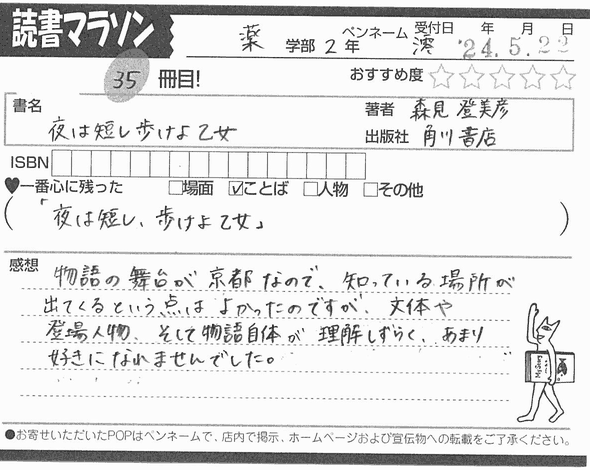 読書マラソン
薬 学部 2 年 ペンネーム 澪 受付日 '24.5.22 年 月 日
35 冊目!
おすすめ度 ☆☆☆☆☆
書名 夜は短し歩けよ乙女
著者 森見登美彦
出版社 角川書店
ISBN
♥一番心に残った □場面 ☑ことば □人物 □その他
(「夜は短し、歩けよ乙女」)
感想
物語の舞台が京都なので、知っている場所が
出てくるという点はよかったのですが、文体や
登場人物、そして物語自体が理解しずらく、あまり
好きになれませんでした。
●お寄せいただいたPOPはペンネームで、店内で掲示、ホームページおよび宣伝物への転載をご了承ください。